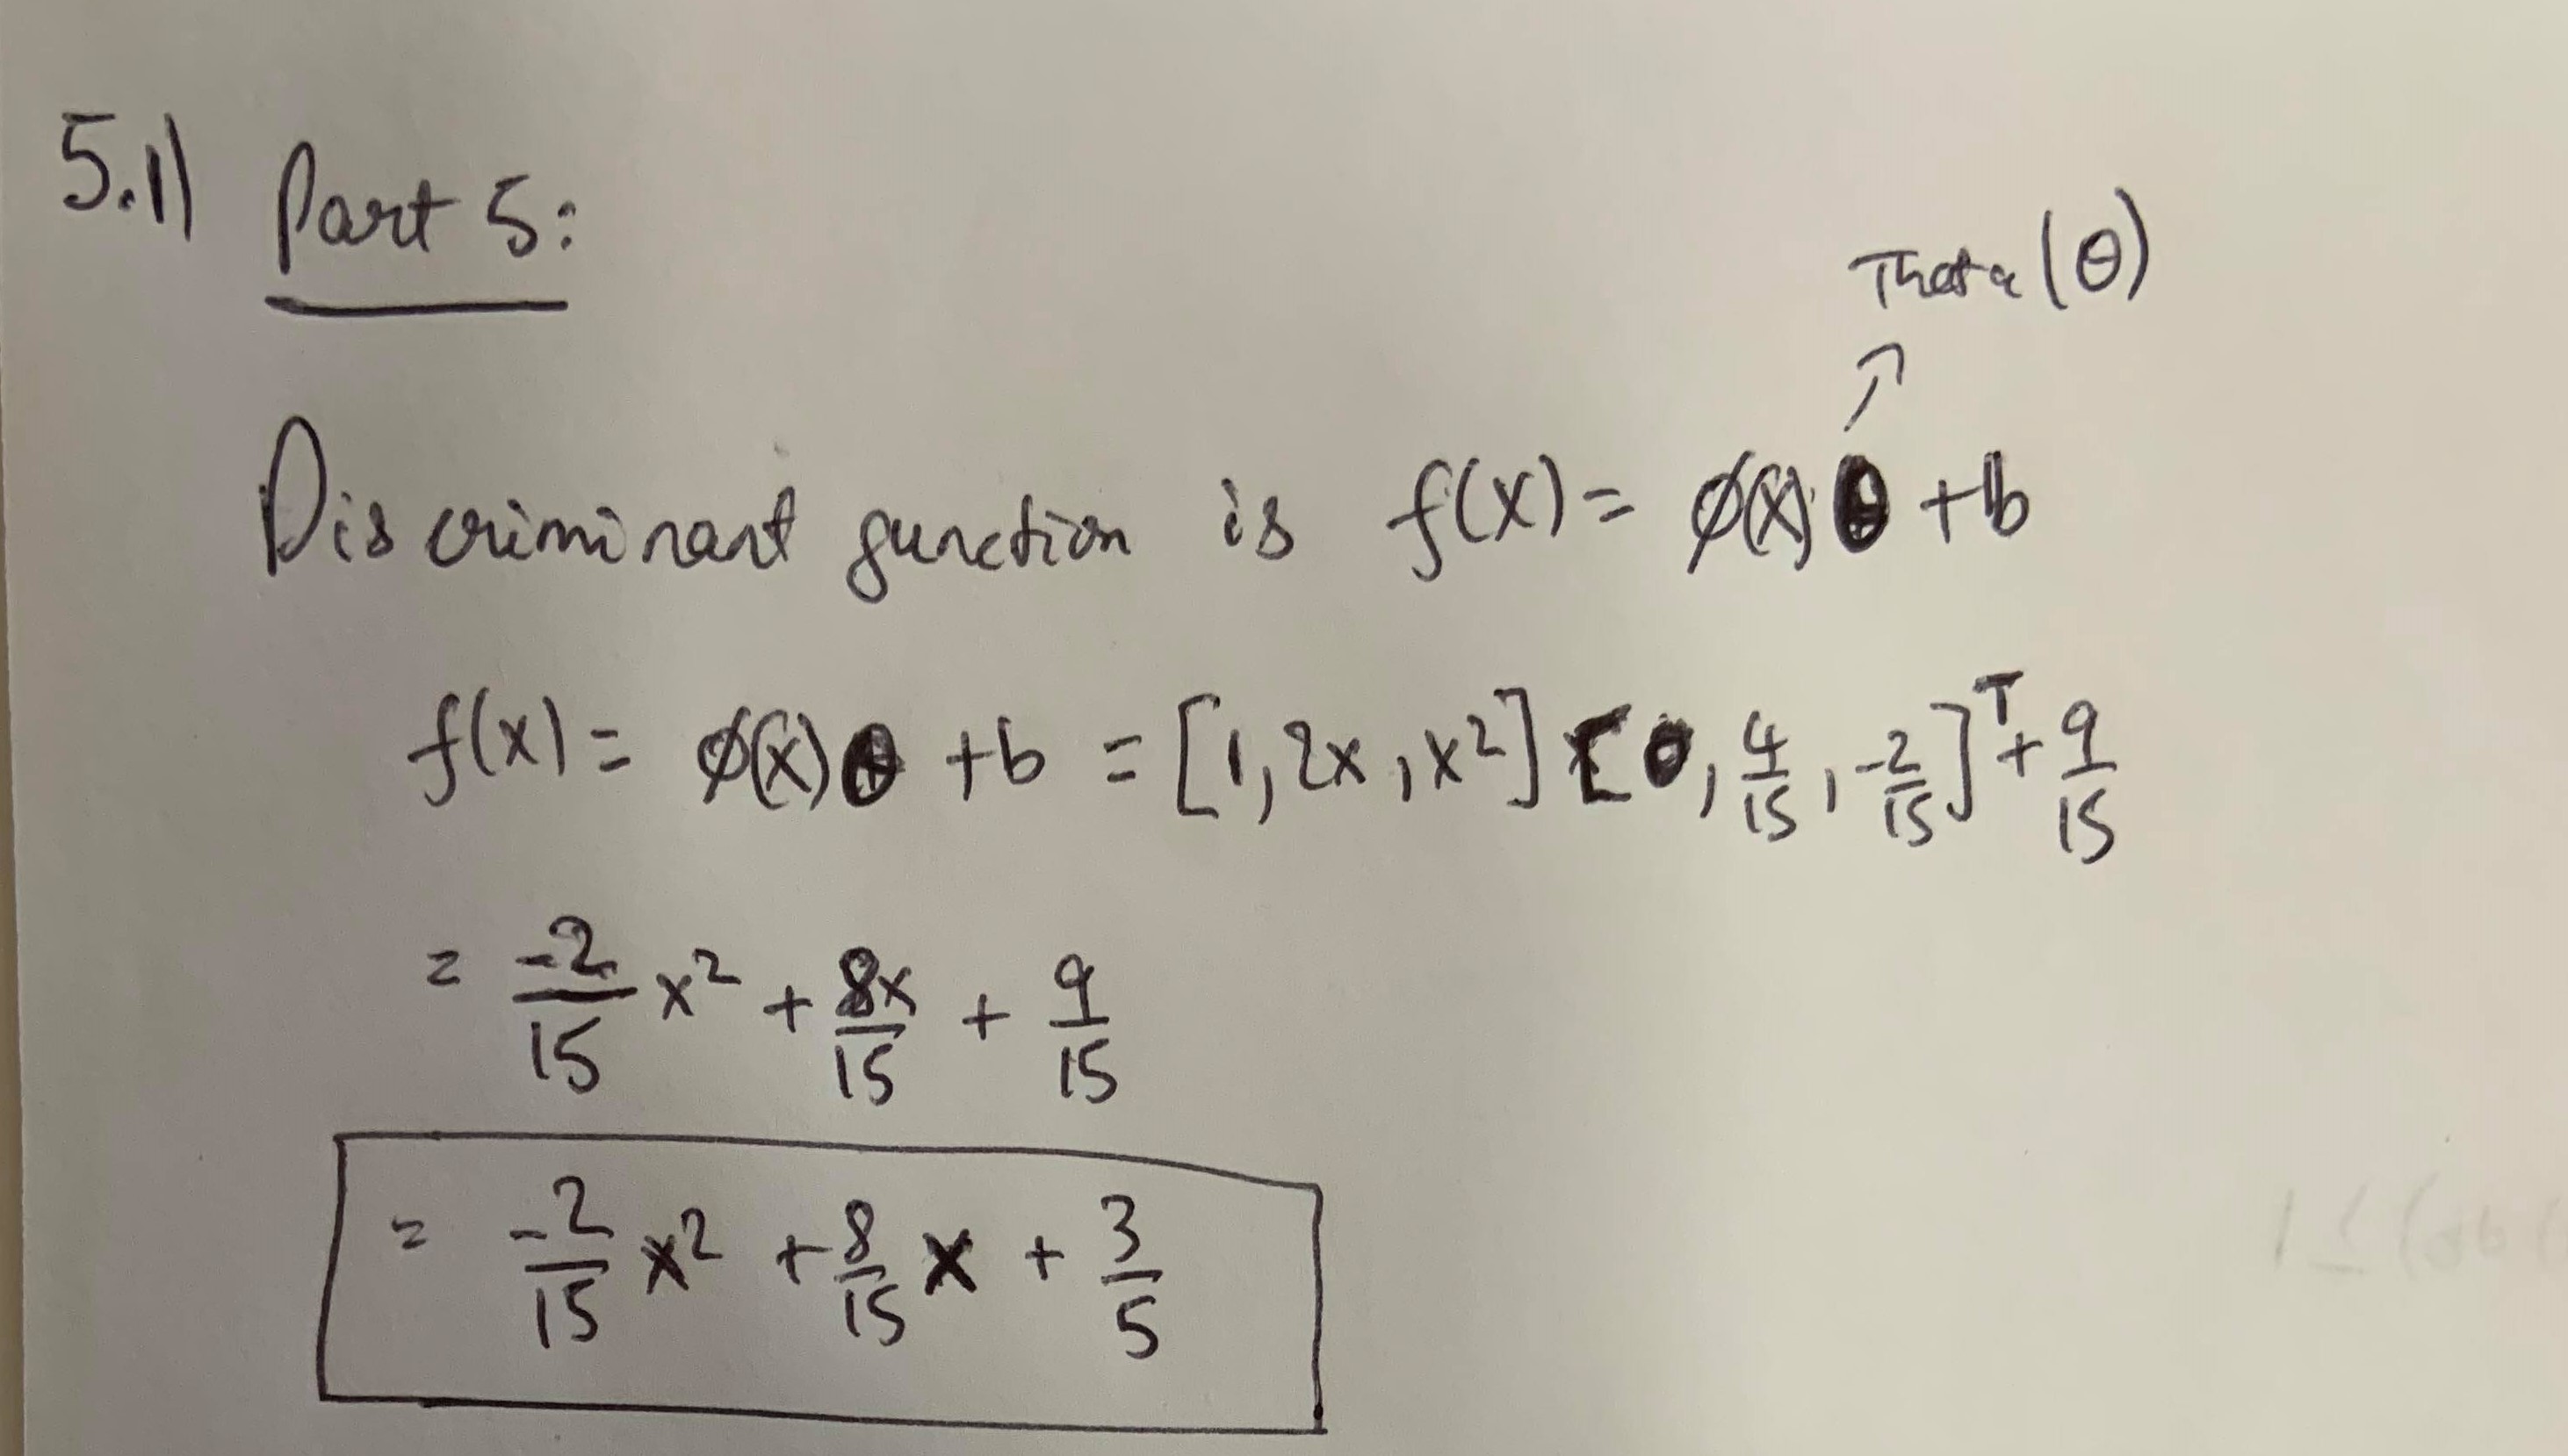 5.1) Part 5:
Theta (θ)
↗
Discriminant function is f(x) = φ(x) θ + b
f(x) = φ(x) θ + b = [1, 2x, x²] [0, 4/15, -2/15]ᵀ + 9/15
= -2/15 x² + 8x/15 + 9/15
= -2/15 x² + 8/15 x + 3/5